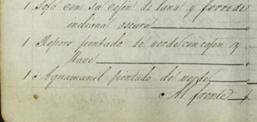 1 Sofa con su cojin de lana y forro de
indiana oscura
1 Ropero pintado de verde con cajon y
llave
1 Aguamanil pintado de verde
Al frente $